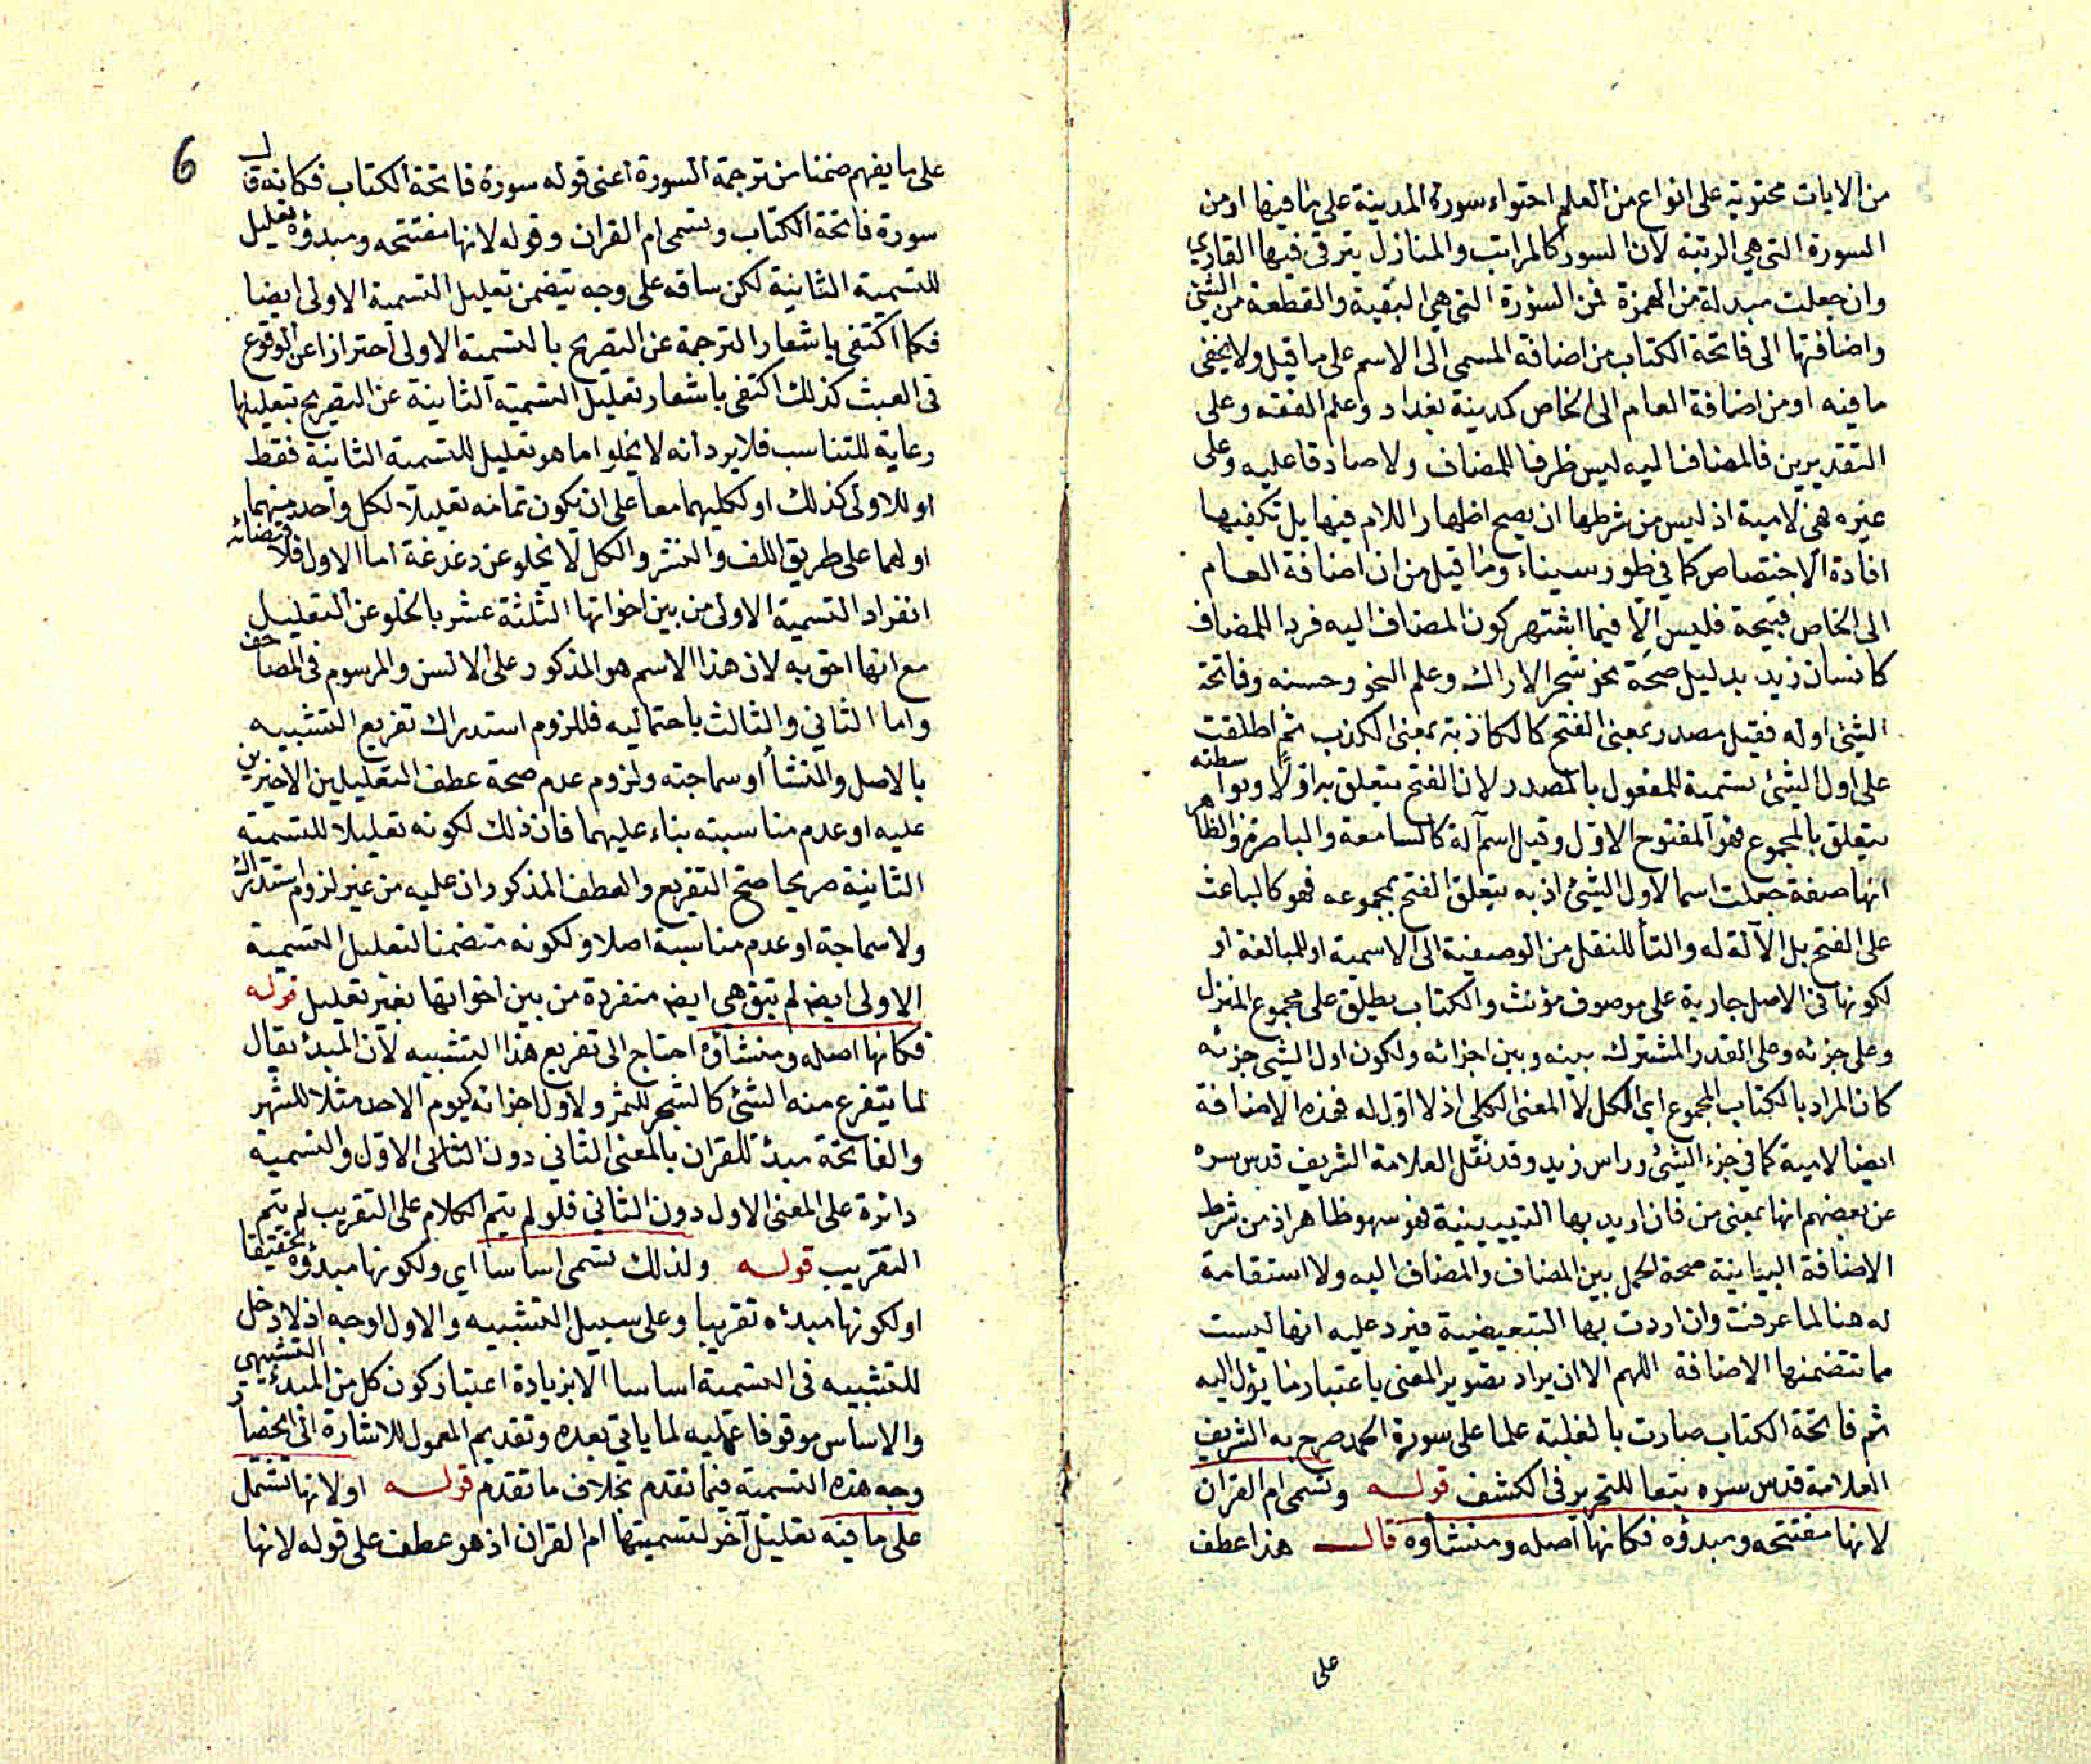 من الايات محتوية على انواع من العلم احتواء سورة المدينة على ما فيها او من
السورة التى هي الرتبة لان السور كالمراتب والمنازل يترقى فيها القاري
وان جعلت مبدلة من الهمزة فمن السؤرة التى هي البقية والقطعة من الشئ
واضافتها الى فاتحة الكتاب من اضافة المسمى الى الاسم على ما قيل ولا يخفى
ما فيه او من اضافة العام الى الخاص كمدينة بغداد وعلم الفقه وعلى
التقديرين فالمضاف اليه ليس ظرفا للمضاف ولا صادقا عليه وعلى
غيره فهى لامية اذ ليس من شرطها ان يصح اظهار اللام فيها بل تكفيها
افادة الاختصاص كما في طور سيناء وما قيل من ان اضافة العام
الى الخاص قبيحة فليس الّا فيما اشتهر كون المضاف اليه فردا للمضاف
كانسان زيد بدليل صحة نحو شجر الاراك وعلم النحو وحسنه وفاتحة
الشئ اوله فقيل مصدر بمعنى الفتح كالكاذبة بمعنى الكذب ثم اطلقت
على اول الشئ تسمية للمفعول بالمصدر لان الفتح يتعلق به اوّلا وبواسطته
يتعلق بالمجموع فهو المفتوح الاوّل وقيل اسم آلة كالسامعة والباصرة والظاهر
انها صفة جعلت اسما لاول الشئ اذ به يتعلق الفتح بمجموعه فهو كالباعث
على الفتح بل الآلة له والتأ للنقل من الوصفية الى الاسمية او للمبالغة او
لكونها فى الاصل جارية على موصوف مؤنث والكتاب يطلق على مجموع المنزل
وعلى جزئه وعلى القدر المشترك بينه وبين اجزائه ولكون اول الشئ جزئه
كان المراد بالكتاب المجموع اي الكل لا المعنى الكلى اذ لا اوّل له فهذه الاضافة
ايضا لامية كما في جزء الشئ وراس زيد وقد نقل العلامة الشريف قدس سره
عن بعضهم انها بمعنى من فان اريد بها التبيينية فهو سهو ظاهر اذ من شرط
الاضافة البيانية صحة الحمل بين المضاف والمضاف اليه ولا استقامة
له هنا لما عرفت وان اردت بها التبعيضية فيرد عليه انها ليست
مما تتضمنها الاضافة اللهم الا ان يراد تصوير المعنى باعتبار ما يؤل اليه
ثم فاتحة الكتاب صارت بالغلبة علما على سورة الحمد صرح به الشريف
العلامة قدس سره تبعا للتحرير فى الكشف قوله وتسمى ام القران
لانها مفتتحه ومبدؤه فكانها اصله ومنشأوه قال هذا عطف
على
6
على ما يفهم ضمنا من ترجمة السورة اعنى قوله سورة فاتحة الكتاب فكانه قال
سورة فاتحة الكتاب وتسمى ام القران وقوله لانها مفتتحه ومبدؤه تعليل
للتسمية الثانية لكن ساقه على وجه يتضمن تعليل التسمية الاولى ايضا
فكما اكتفى باشعار الترجمة عن التصريح بالتسمية الاولى احترازا عن الوقوع
فى العبث كذلك اكتفى باشعار تعليل التسمية الثانية عن التصريح بتعليلها
رعاية للتناسب فلا يرد انه لا يخلو اما هو تعليل للتسمية الثانية فقط
او للاولى كذلك او لكليهما معا على ان يكون تمامه تعليلا لكل واحد منهما
او لهما على طريق اللف والنشر والكل لا يخلو عن دغدغة اما الاول فلاقتضائه
انفراد التسمية الاولى من بين اخواتها الثلثة عشر بالخلو عن التعليل
مع انها احق به لان هذا الاسم هو المذكور على الالسن والمرسوم فى المصاحف
واما الثاني والثالث باحتماليه فللزوم استدراك تفريع التشبيه
بالاصل والمنشأ او سماجته ولزوم عدم صحة عطف التعليلين الاخيرين
عليه او عدم مناسبته بناء عليهما فان ذلك لكونه تعليلا للتسمية
الثانية صريحا صحّ التفريع والعطف المذكوران عليه من غير لزوم استدراك
ولا سماجة او عدم مناسبة اصلا ولكونه متضمنا لتعليل التسمية
الاولى ايضا لم تبق هي ايضا منفردة من بين اخواتها بغير تعليل قوله
فكانها اصله ومنشأوه احتاج الى تفريع هذا التشبيه لان المبدأ يقال
لما يتفرع منه الشئ كالشجر للثمر ولاول اجزائه كيوم الاحد مثلا للشهر
والفاتحة مبدئ للقران بالمعنى الثاني دون الثانى الاوّل والتسمية
دائرة على المعنى الاول دون الثاني فلو لم يتم الكلام على التقريب لم يتم
التقريب قوله ولذلك تسمى اساسا اي ولكونها مبدؤه تحقيقا
او لكونها مبدئه تقريبا وعلى سبيل التشبيه والاول اوجه اذ لا دخل
للتشبيه فى التسمية اساسا الا بزيادة اعتبار كون كل من المبدأ التشبيهي
والاساس موقوفا عليه لما ياتي بعده وتقديم المعمول للاشارة الى انحصار
وجه هذه التسمية فيما تقدم بخلاف ما تقدم قوله او لانها تشتمل
على ما فيه تعليل آخر لتسميتها ام القران اذ هو عطف على قوله لانها